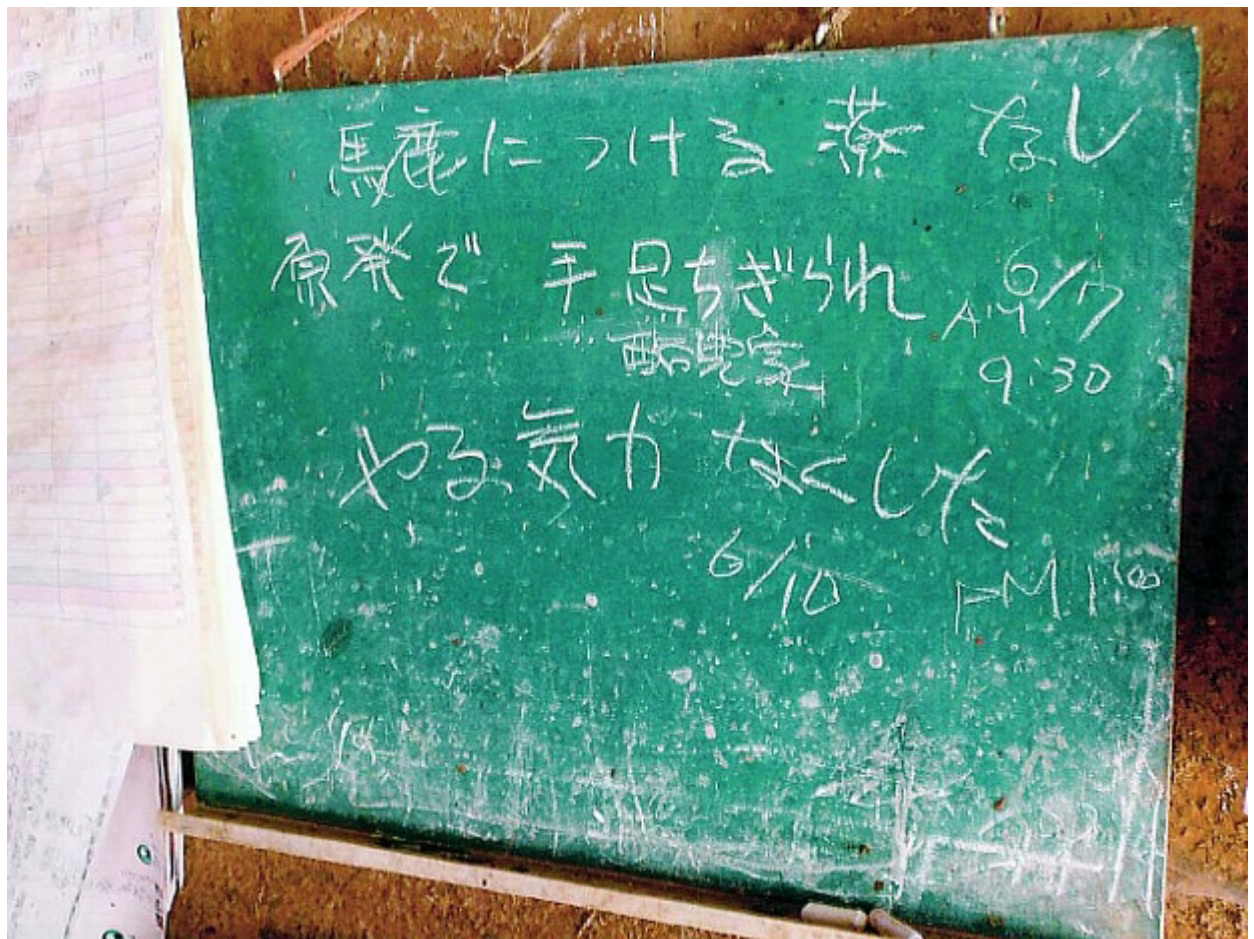 馬鹿につける薬 なし
原発で 手足ちぎられ 6/7
AM 9:30
酪農家
やる気力 なくした
6/10 PM 1:00